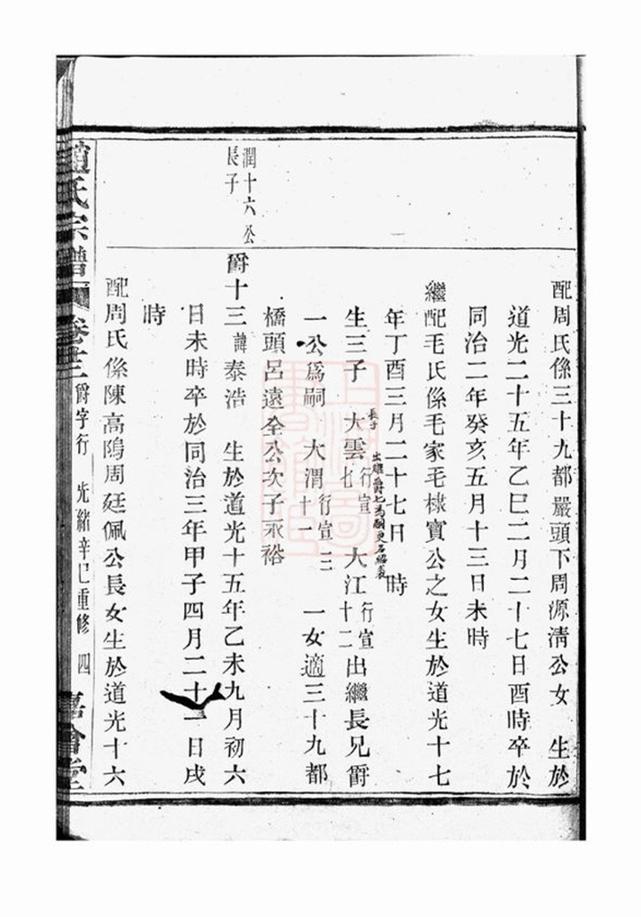 配周氏係三十九都嚴頭下周源淸公女　生於
道光二十五年乙巳二月二十七日酉時卒於
同治二年癸亥五月十三日未時
繼配毛氏係毛家毛棣寶公之女生於道光十七
年丁酉三月二十七日　時
生三子　大雲行宣七　大江行宣十二出繼長兄爵
長子
一公爲嗣　大渭行宣十一　一女適三十九都
橋頭呂遠全公次子永裕
潤十六公
長子
爵十三諱泰浩　生於道光十五年乙未九月初六
日未時卒於同治三年甲子四月二十一日戌
時
配周氏係陳高隝周廷佩公長女生於道光十六
趙氏宗譜　卷十三　爵字行　光緖辛巳重修　四